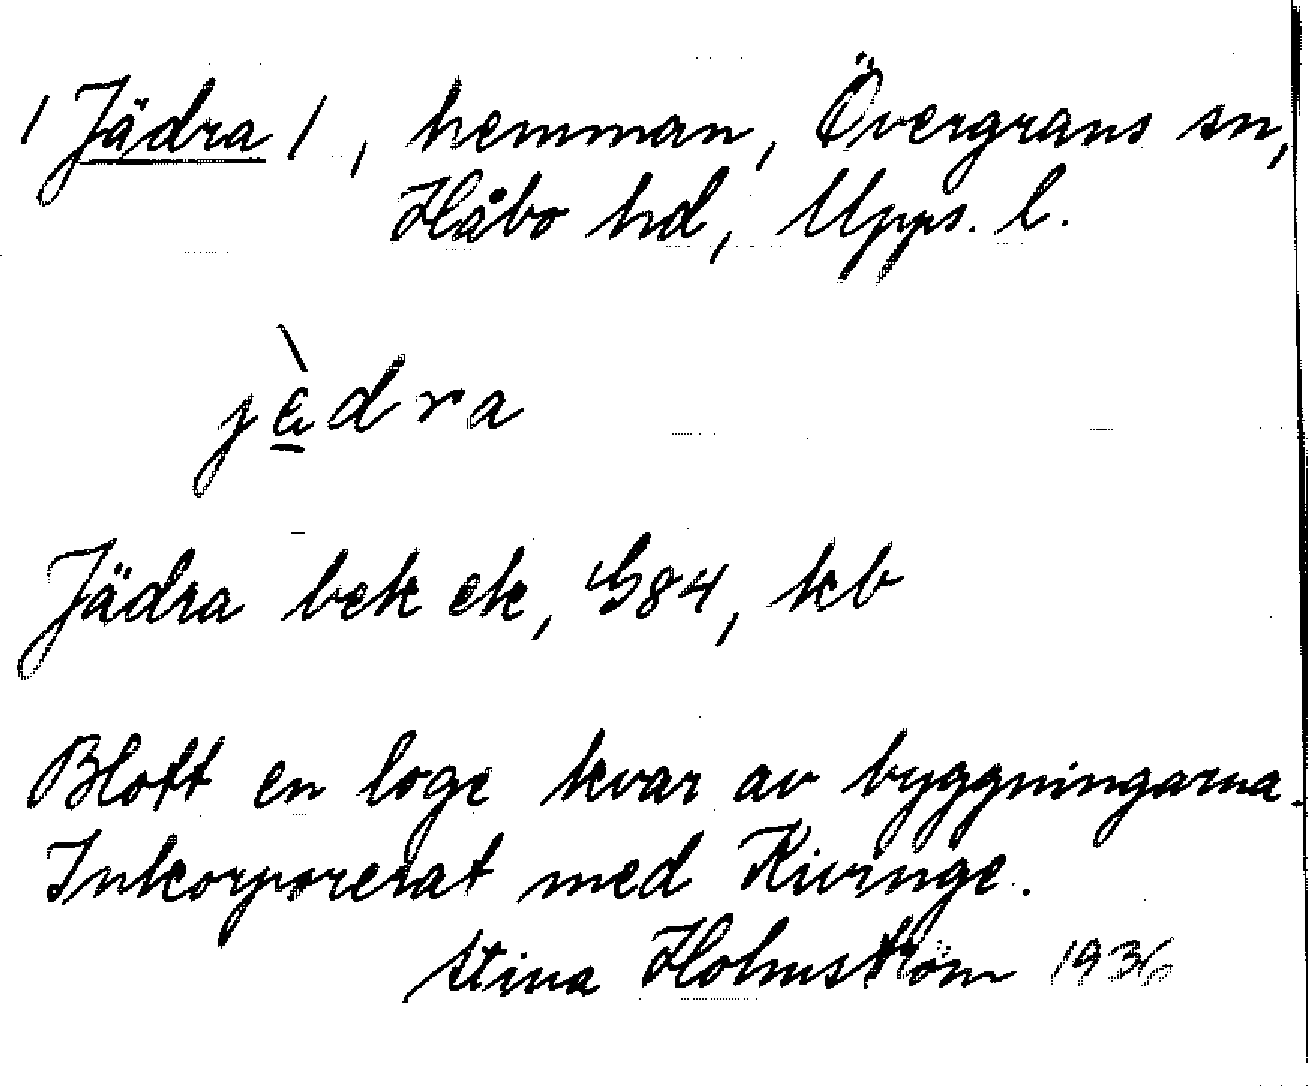 / Jädra /, hemman, Övergrans sn,
Håbo hd, Upps. l.
jèdra
Jädra bek ek, G84, kb
Blott en loge kvar av byggningarna.
Inkorporerat med Kivinge.
Stina Holmström 1936